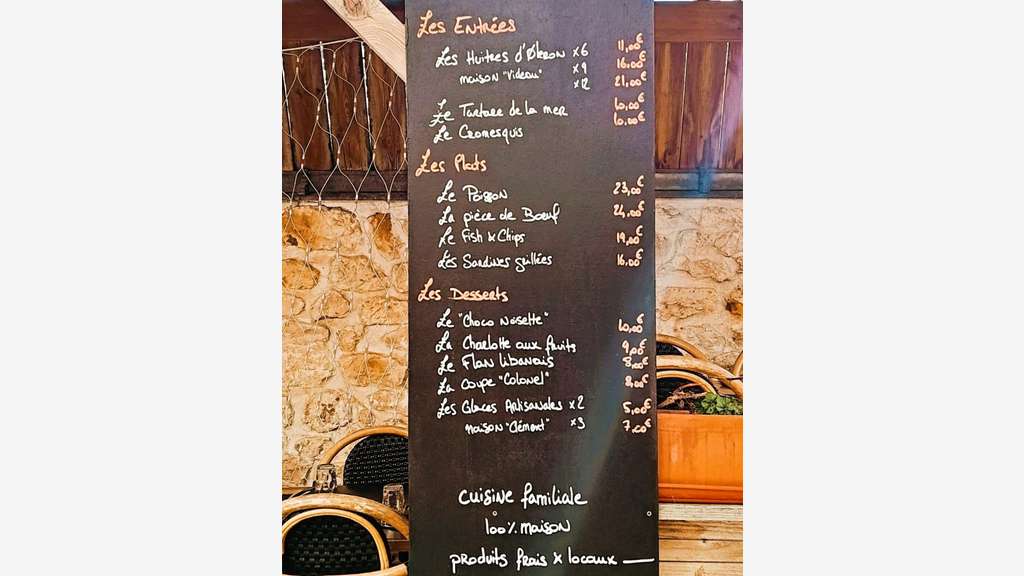 Les Entrées
Les Huitres d'Oléron x6 11,00€
maison "Videau" x9 16,00€
x12 21,00€
Le Tartare de la mer 10,00€
Le Cromesquis 10,00€
Les Plats
Le Poisson 23,00€
La pièce de Boeuf 24,00€
Le Fish & Chips 19,00€
Les Sardines grillées 16,00€
Les Desserts
Le "Choco Noisette" 10,00€
La Charlotte aux fruits 9,00€
Le Flan libanais 8,00€
La coupe "Colonel" 8,00€
Les Glaces Artisanales x2 5,00€
maison "Clément" x3 7,00€
cuisine familiale
100% maison
produits frais & locaux